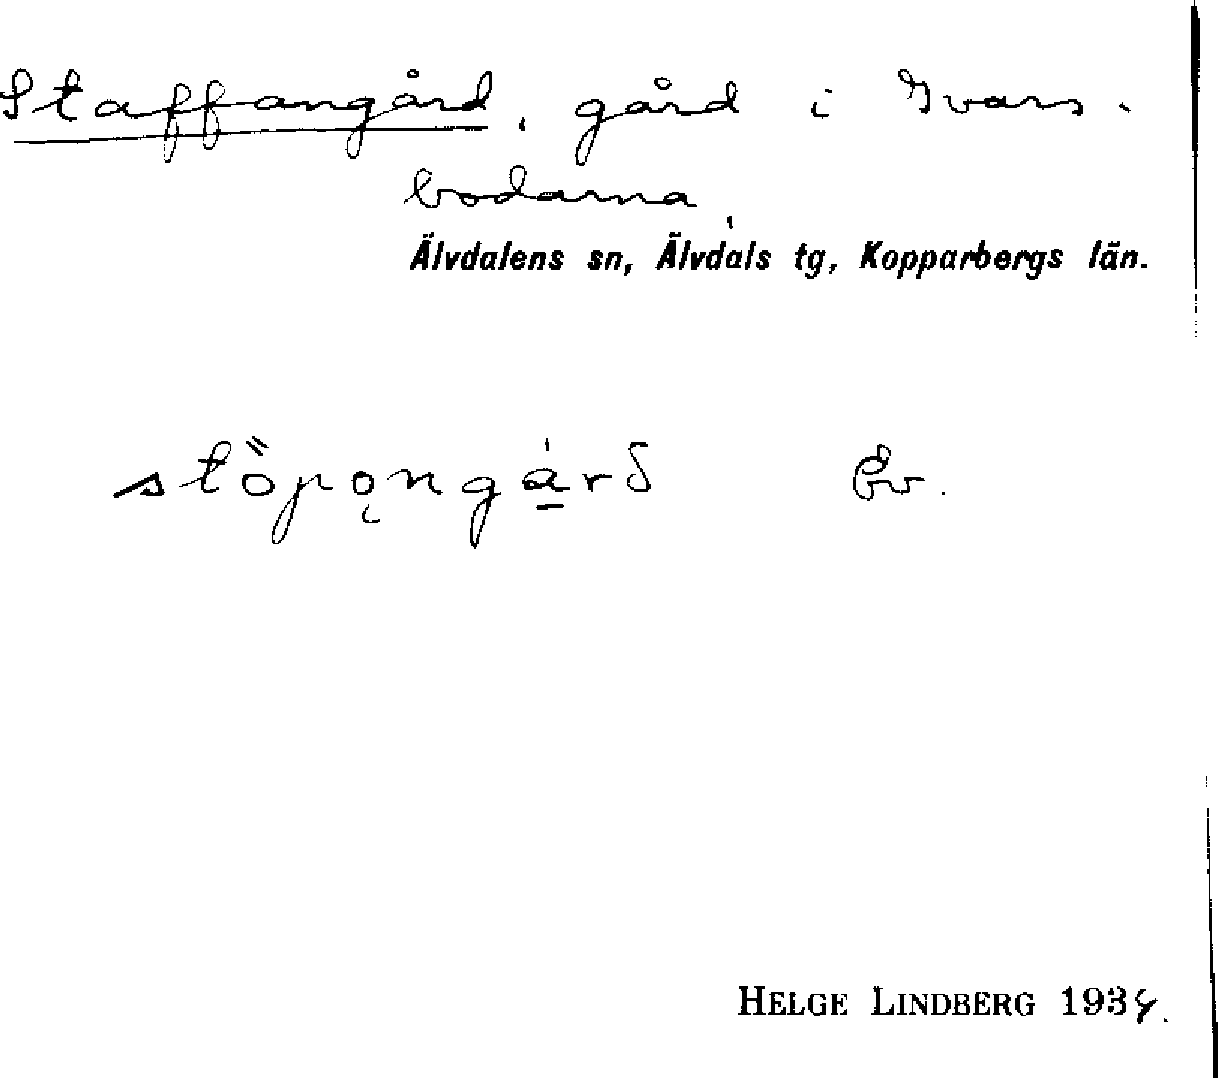 Staffangård, gård i Ivars-
bodarna,
Älvdalens sn, Älvdals tg, Kopparbergs län.
HELGE LINDBERG 1934.